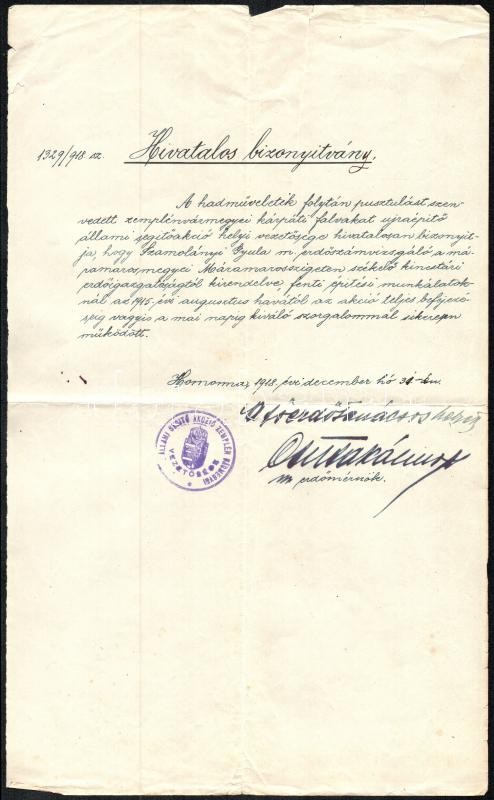 1329/918. sz. Hivatalos bizonyitvány.
A hadmüveletek folytán pusztulást szen-
vedett zemplénvármegyei kárpáti falvakat ujraépitő
állami segitőakció helyi vezetősége hivatalosan bizonyit-
ja, hogy Szamolányi Gyula m. erdőszámvizsgáló a má-
ramarosmegyei Máramarosszigeten székelő kincstári
erdőigazgatóságtól kirendelve, fenti épitési munkálatok-
nál az 1915. évi augusztus havától az akció teljes befejezé-
séig vagyis a mai napig kiváló szorgalommal sikeresen
működött.
Homonna, 1918. évi december hó 31-én.
A főerdőtanácsos helyett
m. erdőmérnök.
ÁLLAMI SEGITŐ AKCIÓ ZEMPLÉN VÁRMEGYEI
VEZETŐSÉGE